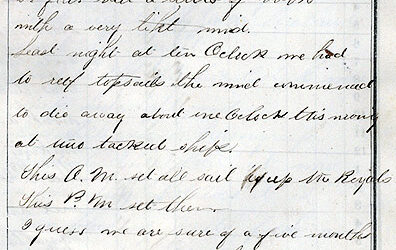 with a very light wind.
Last night at ten Oclock we had
to reef topsails the wind commenced
to die away about one Oclock this morning
at two tacked ship.
This A.M. set all sail the Royals
This P.M. set them
I guess we are sure of a five months